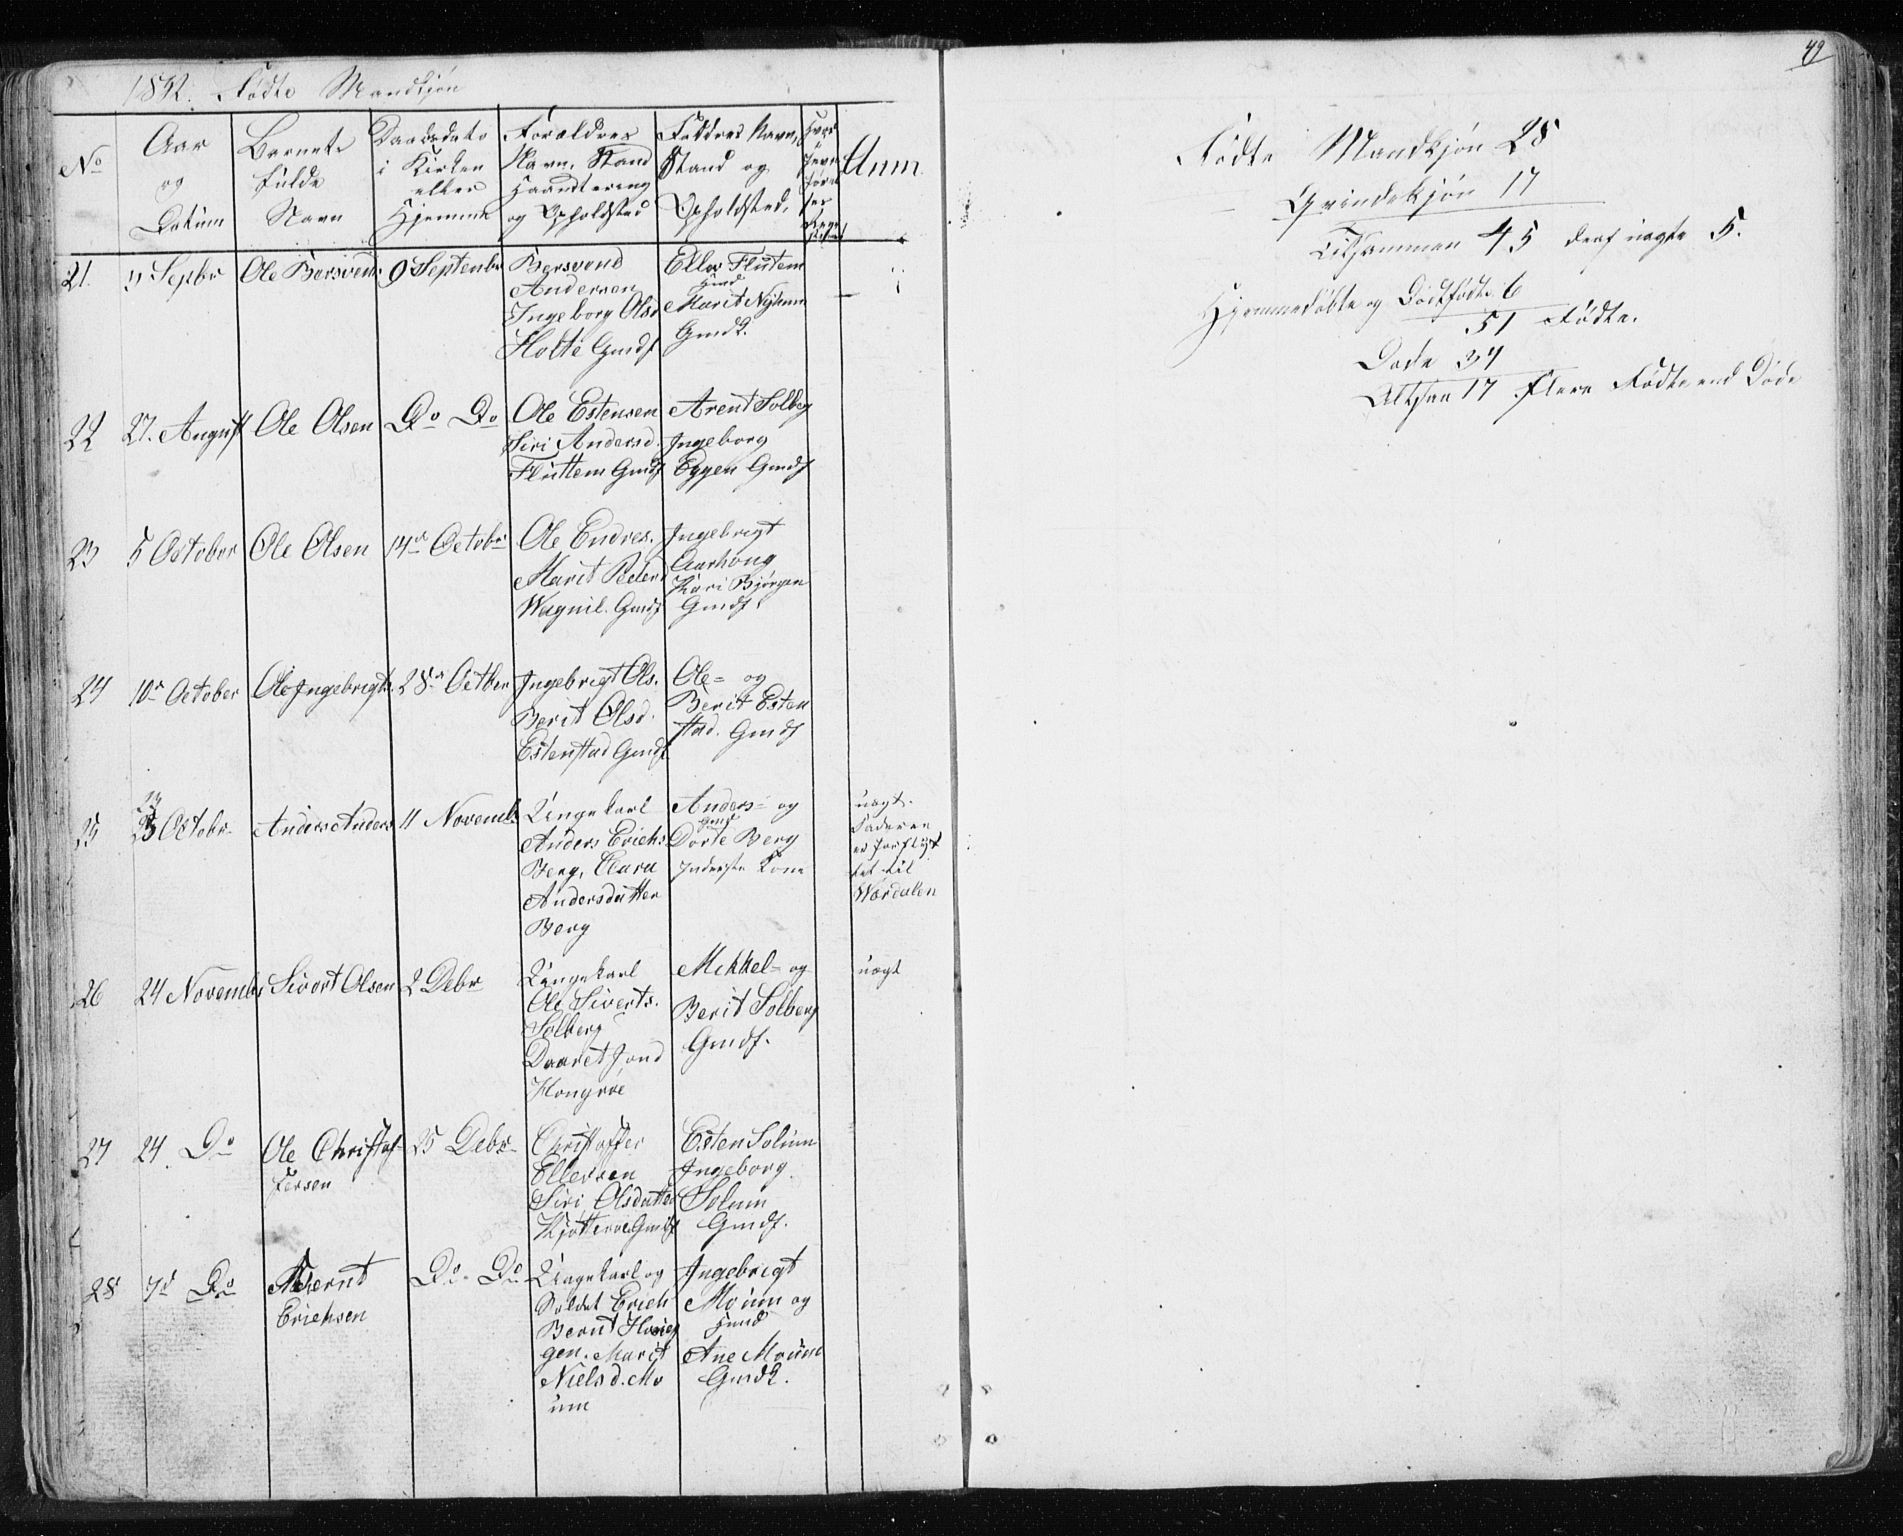 49
1832. Fødte Mandkjøn
No
Aar
og
Datum
Barnets
fulde
Navn
Daabsdato
i Kirken
eller
Hjemme
Forældres
Navn, Stand
Haandtering
og Opholdsted
Faddres Navn,
Stand og
Opholdsted.
Anm
21. 3 Sepbr Ole Borsvend 9 Septembr
Borsvend
Andersen
Ingeborg Olsd
Holte Gmdf
Ellev Flutem
Gmd
Marit Nyhuus
Gmdk.
22 27. August Ole Olsen Do Do
Ole Estensen
Siri Andersd.
Fluttem Gmdf
Arent Solberg
Ingeborg
Eggen Gmdf
23 5 October Ole Olsen 14de October
Ole Endres.
Marit Peders
Wagnil. Gmdf
Ingebrigt
Aarhoug
Kari Bjørgen
Gmdf.
24 10de October Ole Ingebrigts. 28de Octber
Ingebrigt Ols.
Berit Olsd.
Estenstad Gmdf
Ole= og
Berit Esten
stad. Gmdf
25 23 Octobr Anders Anders 11 Novemb
Ungekarl
Anders Erichs
Berg, Clara
Andersdatter
Berg
Anders= og
Gmd
Dorte Berg
Inderste Kone
uægt.
Faderen
er forflyt
tet til
Wærdalen
26 24 Novembr Sivert Olsen 2 Debr
Ungekarl
Ole Siverts.
Solberg
Daaret Jond
Hongroe
Mekkel= og
Berit Solberg
Gmdf.
uægt
27 24 Do Ole Christof-
fersen
25 Debr
Christoffer
Ellevsen
Siri Olsdatter
Kjøtteroe Gmdf
Esten Solum
Ingeborg
Solum
Gmdf.
28 7de Do Bernt
Erichsen
Do. Do
Ungekarl og
Soldat Erich
Bernt Haug
gen. Marit
Nielsd. Mo
um
Ingebrigt
Moum og
Gmd
Ane Moum
Gmdk.
Fødte Mandkjøn 28
Qvindekjøn 17
Tilsammen 45 deraf uægte 5.
Hjemmedøbte og Dødfødte 6
51 Fødte.
Døde 34
Altsaa 17 flere Fødte end Døde